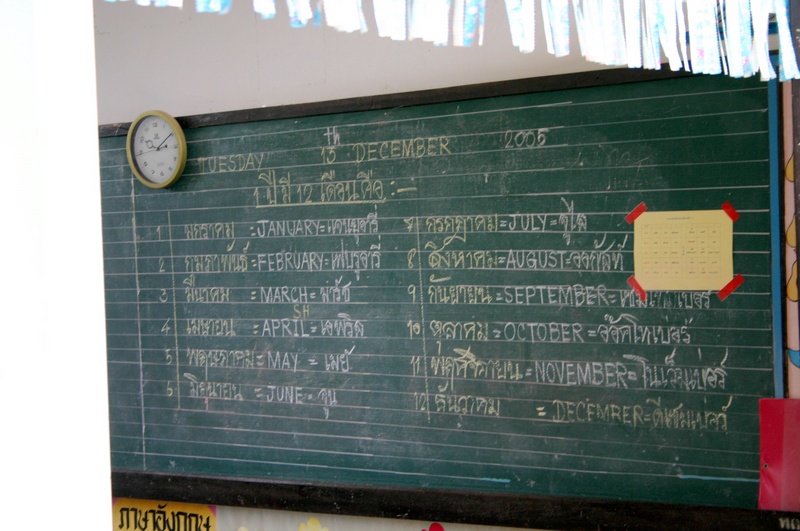 TUESDAY 13th DECEMBER 2005
1 ปี มี 12 เดือน คือ :-
1 มกราคม = JANUARY = แจนยูอารี่
2 กุมภาพันธ์ = FEBRUARY = เฟบรูอารี่
3 มีนาคม = MARCH = มาร์ช
SH
4 เมษายน = APRIL = เอพริล
5 พฤษภาคม = MAY = เมย์
6 มิถุนายน = JUNE = จูน
กรกฎาคม = JULY = จูไล
8 สิงหาคม = AUGUST = ออกัสท์
9 กันยายน = SEPTEMBER =
10 ตุลาคม = OCTOBER = อ๊อคโทเบอร์
11 พฤศจิกายน = NOVEMBER = โนเว็มเบอร์
12 ธันวาคม = DECEMBER = ดีเซมเบอร์
ภาษาอังกฤษ